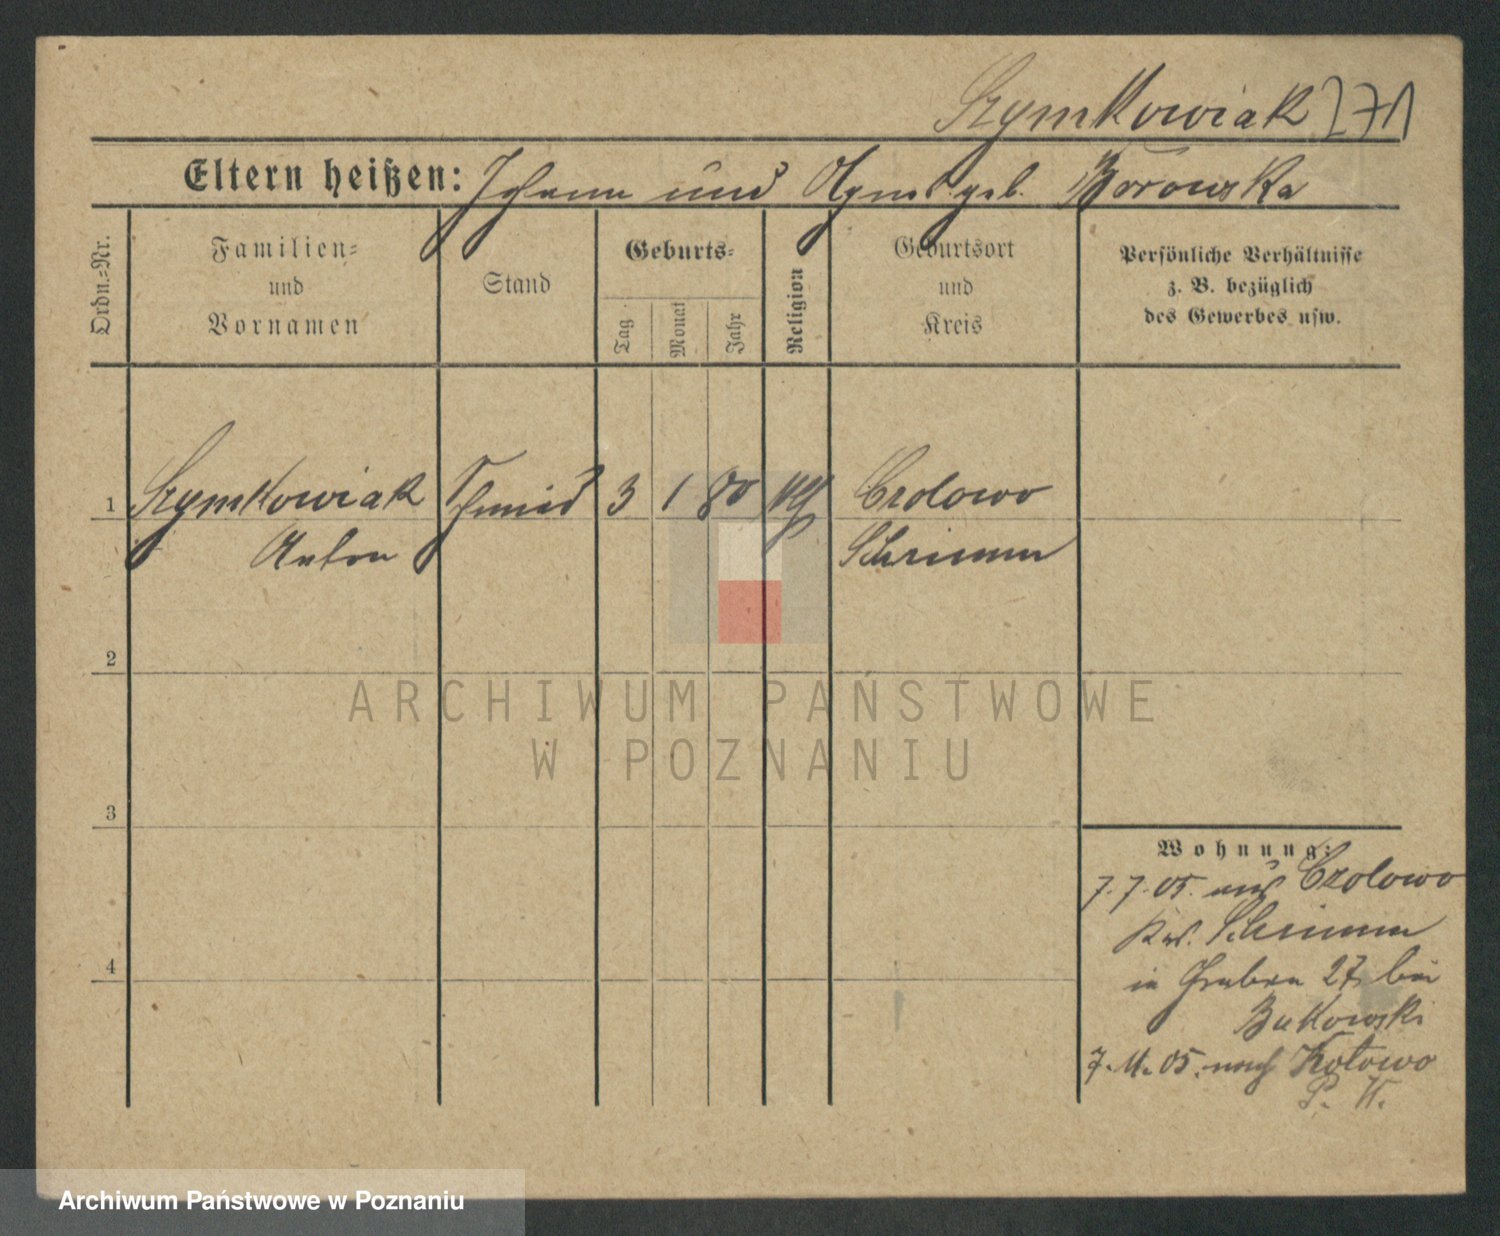 Szymkowiak 271
Eltern heißen: Johann und Agnes geb. Borowska
Ordn.-Nr.
Familien-
und
Vornamen
Stand
Geburts-
Tag
Monat
Jahr
Religion
Geburtsort
und
Kreis
Persönliche Verhältnisse
z. B. bezüglich
des Gewerbes usw.
1 Szymkowiak Schmied 3 1 80 Czolowo
Anton Schrimm
2
ARCHIWUM PAŃSTWOWE
W POZNANIU
3
Wohnung:
7.7.05. aus Czolowo
Krs. Schrimm
in Graben 27 bei
Bukowski
7.11.05. nach Kotowo
P. W.
4
Archiwum Państwowe w Poznaniu